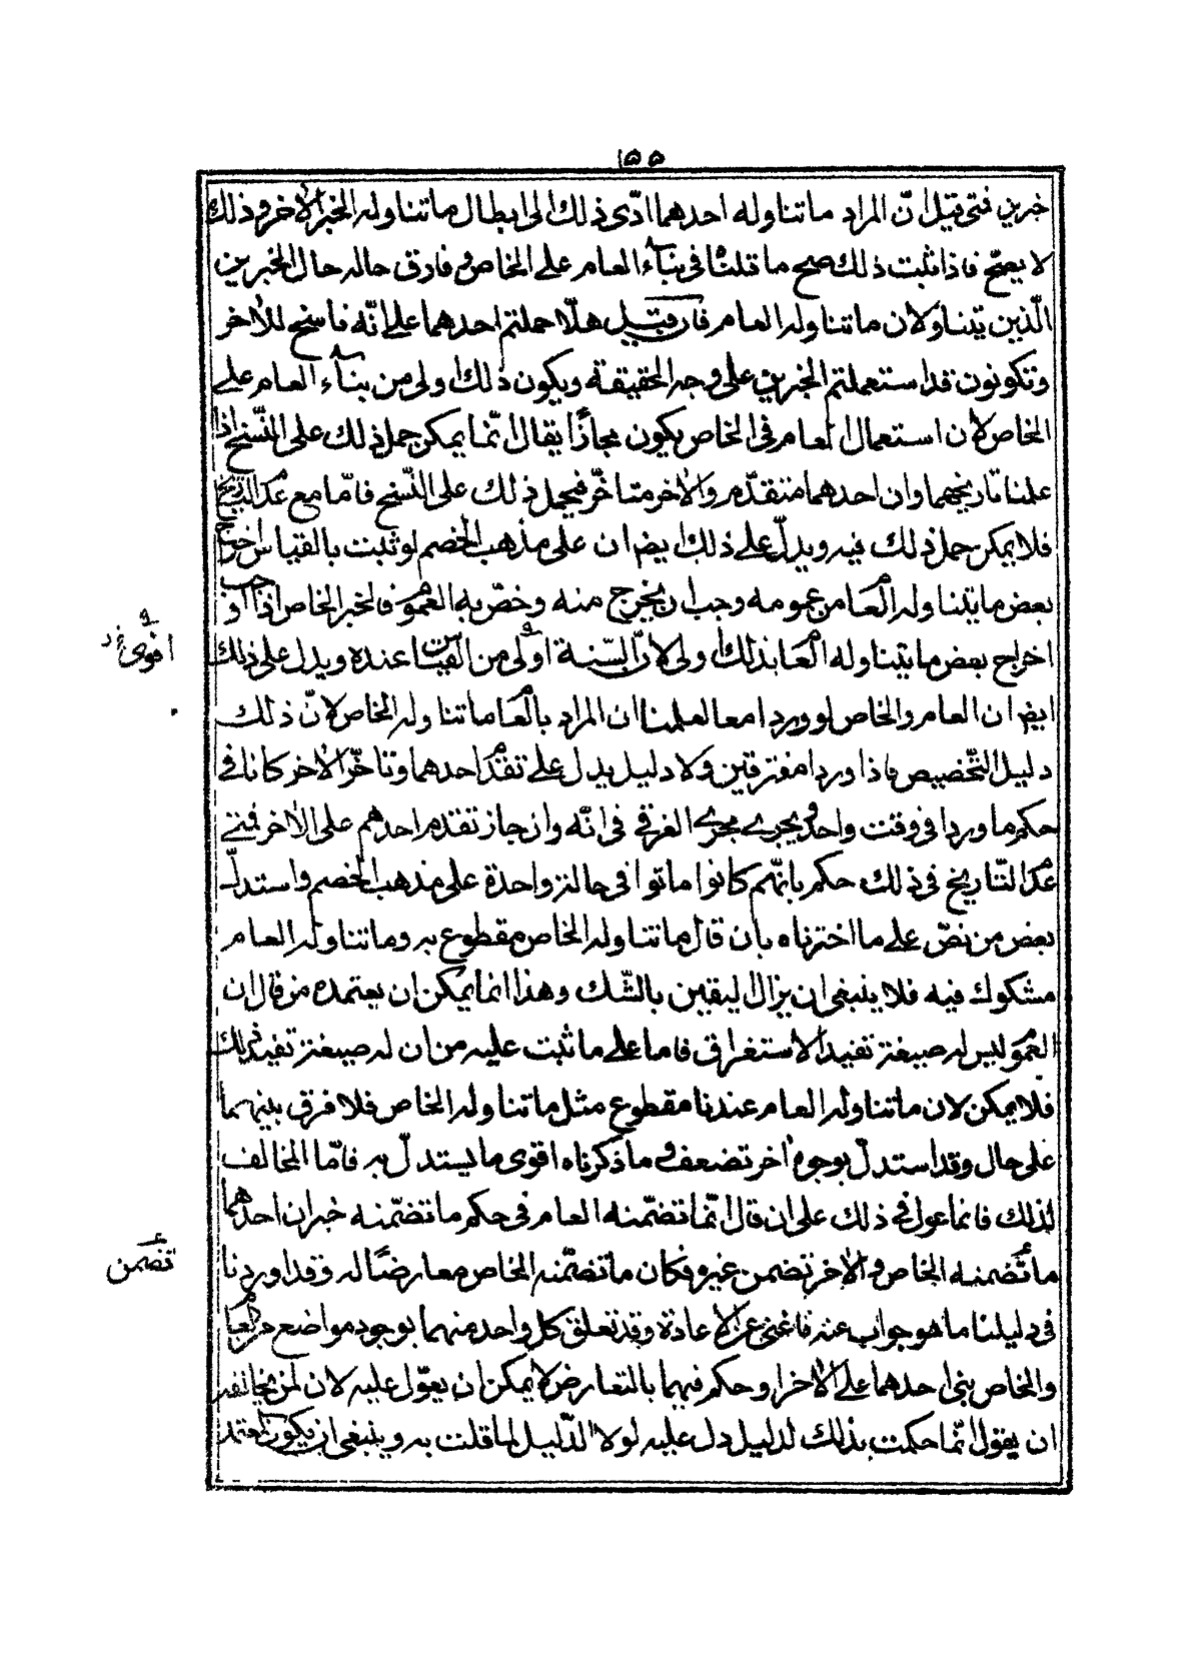 ١٥٥
خبرين فمتى قيل انّ المراد ما تناوله احدهما ادّى ذلك الى ابطال ما تناوله الخبر الاخر وذلك
لا يصحّ فاذا ثبت ذلك صح ما قلناه فى بناء العام على الخاص وفارق حاله حال الخبرين
الّذين يتناولان ما تناوله العام فان قيل هلّا حملتم احدهما على انّه ناسخ للاخر
وتكونون قد استعملتم الخبرين على وجه الحقيقة ويكون ذلك اولى من بناء العام على
الخاص لان استعمال العام فى الخاص يكون مجازًا يقال انّما يمكن حمل ذلك على النّسخ اذا
علمنا تاريخهما وان احدهما متقدّم والاخر متاخّر فيحمل ذلك على النّسخ فامّا مع عدم التاريخ
فلا يمكن حمل ذلك فيه ويدلّ على ذلك ايضا ان على مذهب الخصم لو ثبت بالقياس اخراج
بعض ما يتناوله العام من عمومه وجب ان يخرج منه وخصّ به العموم فالخبر الخاص اذا اوجب
اخراج بعض ما يتناوله العام بذلك اولى لانّ السّنة اولى من القياس عنده ويدل على ذلك
اقوى
ايضا ان العام والخاص لو وردا معا لعلمنا ان المراد بالعام ما تناوله الخاص لانّ ذلك
دليل التّخصيص فاذا وردا مفترقين ولا دليل يدل على تقدم احدهما وتاخّر الاخر كانا فى
حكم ما وردا فى وقت واحد ويجرى مجرى الغرقى فى انّه وان جاز تقدم احدهم على الاخر فمتى
عدم التّاريخ فى ذلك حكم بانّهم كانوا ماتوا فى حالة واحدة على مذهب الخصم واستدلّ
بعض من نصّ على ما اخترناه بان قال ما تناوله الخاص مقطوع به وما تناوله العام
مشكوك فيه فلا ينبغى ان يزال اليقين بالشّك وهذا انما يمكن ان يعتمده من قال ان
العموم ليس له صيغة تفيد الاستغراق فاما على ما ثبت عليه من ان له صيغة تفيد ذلك
فلا يمكن لان ما تناوله العام عندنا مقطوع مثل ما تناوله الخاص فلا فرق بينهما
على حال وقد استدلّ بوجوه اخر تضعف وما ذكرناه اقوى ما يستدلّ به فامّا المخالف
لذلك فانما عول فى ذلك على ان قال انّما تضمّنه العام فى حكم ما تضمّنه خبران احدهما
ما تضمنه الخاص والاخر تضمن غيره فكان ما تضمّنه الخاص معارضًا له وقد اوردنا
تضمن
فى دليلنا ما هو جواب عنه فاغنى عن الاعادة وقد تعلق كل واحد منهما بوجود مواضع من العام
والخاص بنى احدهما على الاخر او حكم فيهما بالتعارض لا يمكن ان يعوّل عليه لان لمن يخالفه
ان يقول انّما حكمت بذلك لدليل دل عليه لولا الدّليل لما قلت به وينبغى ان يكون المعتمد